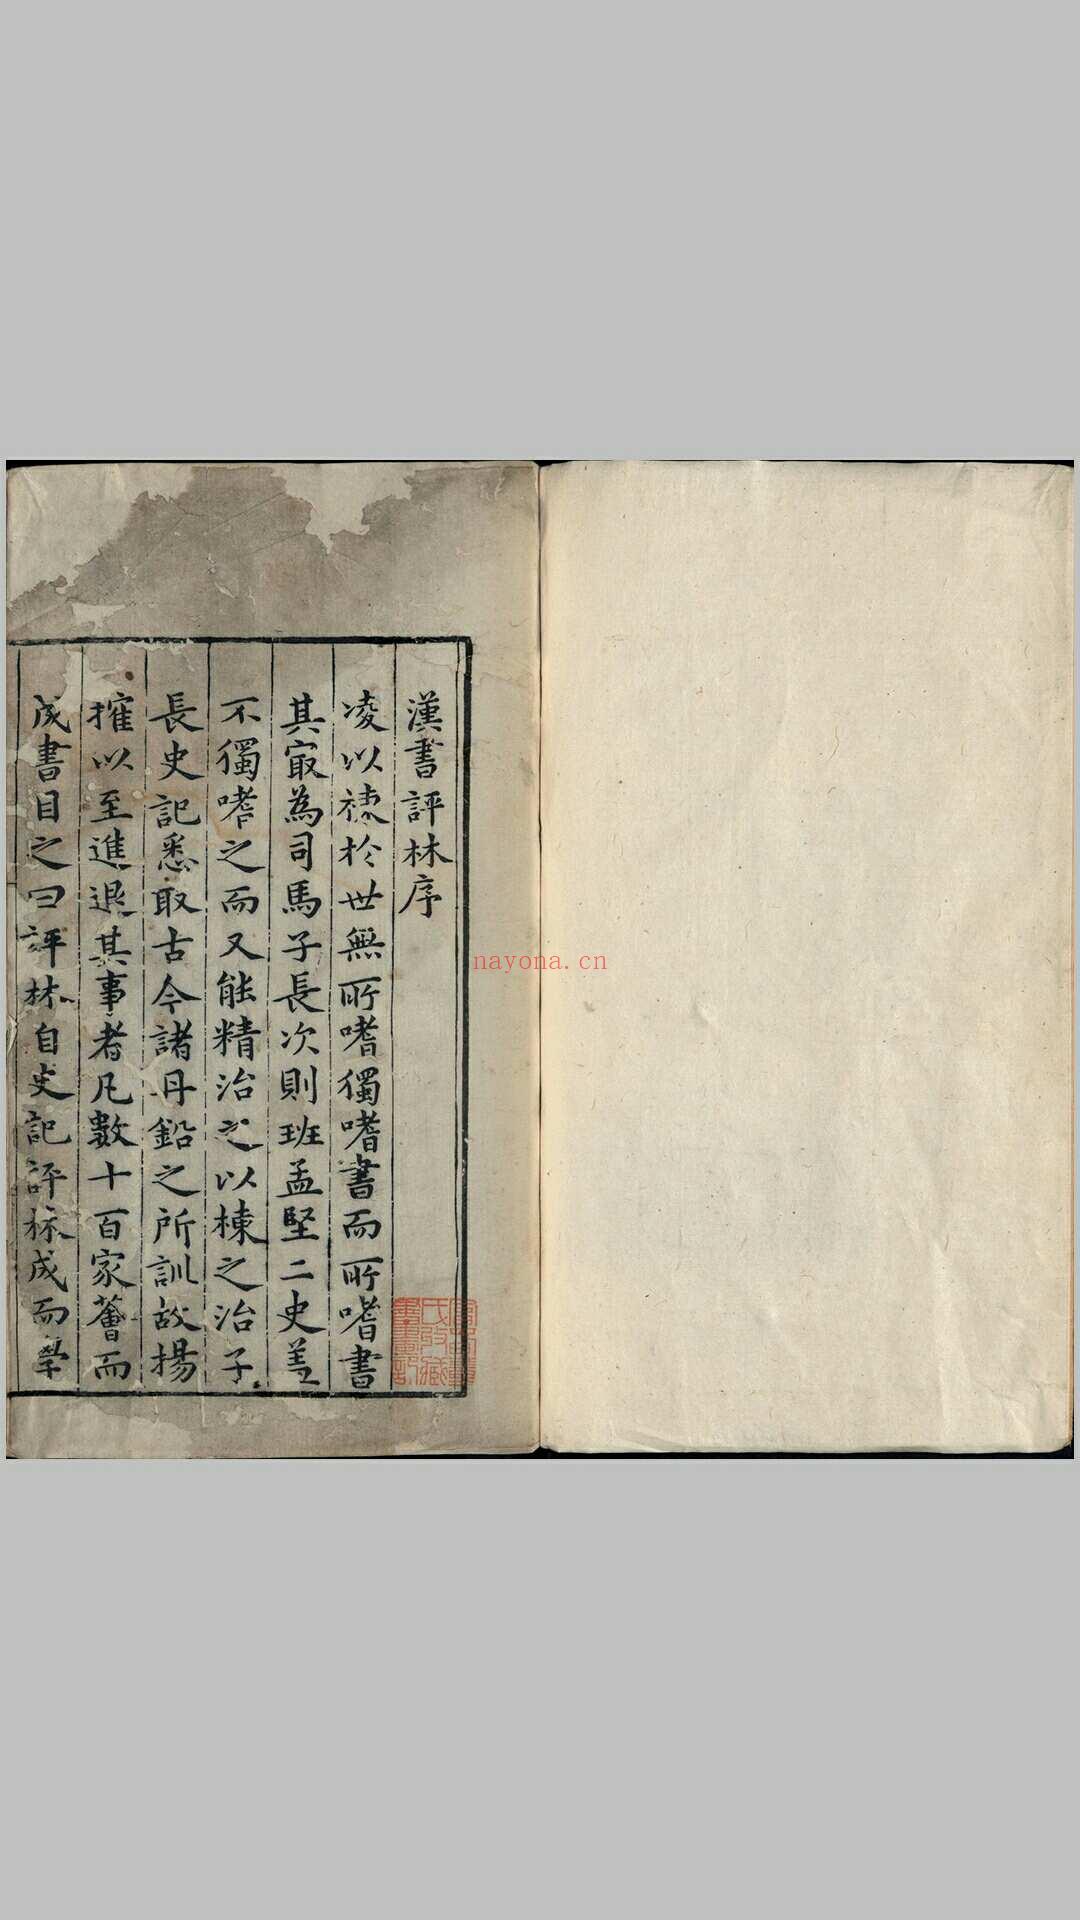 漢書評林序
凌以棟於世無所嗜獨嗜書而所嗜書
其寂為司馬子長次則班孟堅二史盖
不獨嗜之而又能精治之以棟之治子
長史記悉取古今諸丹鉛之所訓故揚
搉以至進退其事者凡數十百家薈而
成書目之曰評林自史記評林成而學
nayona.cn